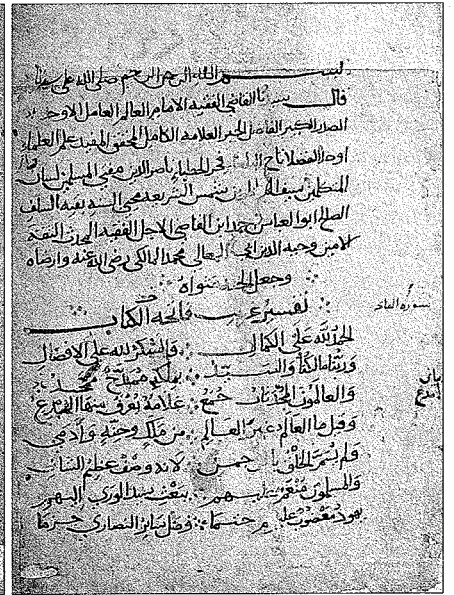 بسم الله الرحمن الرحيم صلى الله على سيدنا
قال سيدنا القاضي الفقيه الامام العالم العامل الاوحد
الصدر الكبير الفاضل الحبر العلامة الكامل المحقق المفيد علم العلماء
اوحد الفضلا تاج فخر الخطبا ناصر الدين مفتي المسلمين لسان
المتكلمين سيف شمس الشريعه محيي السنه بقيه السلف
الصالح ابو العباس احمد ابن القاضي الاجل الفقيه المحدث الثقة
الامين وجيه الدين ابي المعالي محمد المالكي رضي الله عنه وارضاه
وجعل الجنه مثواه
تفسير غريب فاتحة الكتاب
سورة الفاتحة
الحمد لله على الكمال والشكر لله على الافضال
وربنا مالكنا والسيد
والعالمون المحدثات جمع علامة يعرف منها المبدع
وقيل ما العالم غير العالم من ملك وجنه وادمي
ولم يسم الخلق لانه وصف عظيم الشان
والمسلمون منعم عليهم بعث سيد الوري اليهم
يهود مغضوب عليهم حتما وضل سائر النصاري جزما